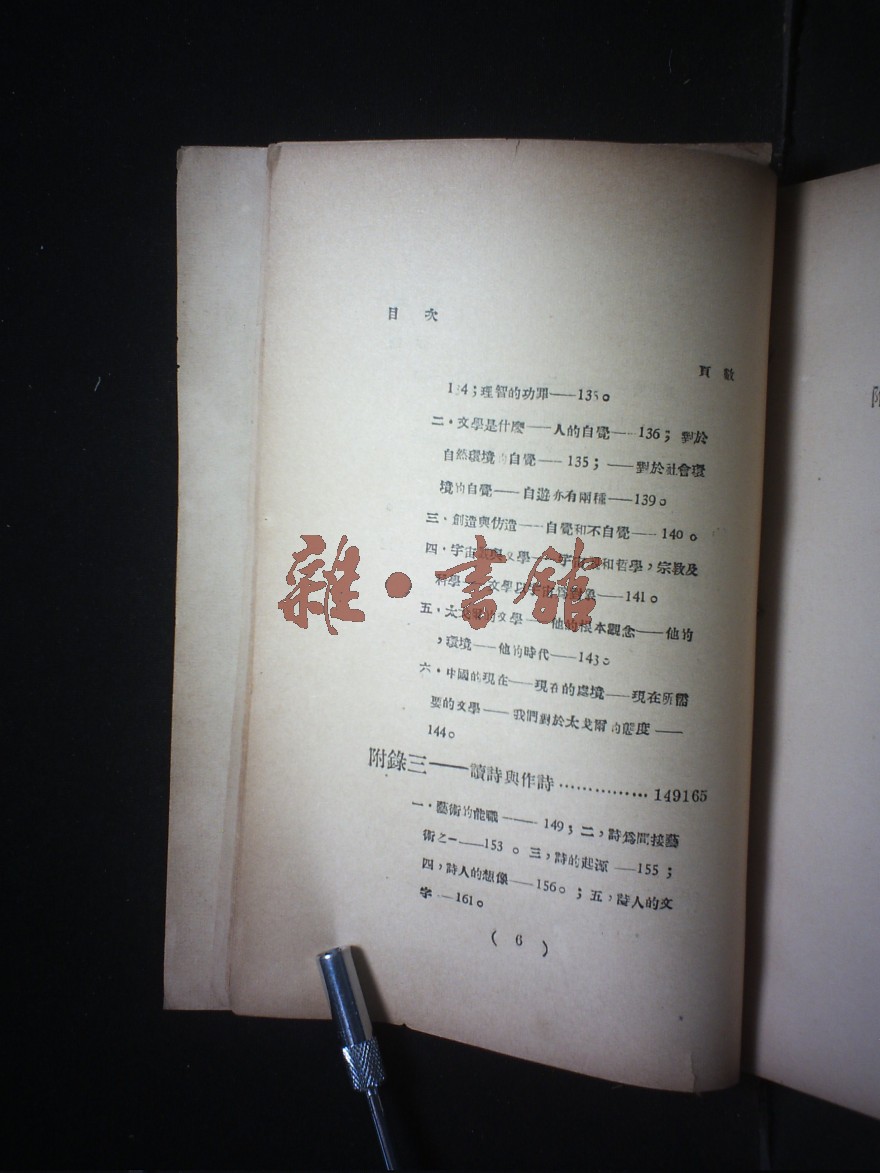 目次
頁數
134；理智的功罪——135。
二．文學是什麼——人的自覺——136；對於
自然環境的自覺——135；——對於社會環
境的自覺——自遊亦有兩種——139。
三．創造與仿造——自覺和不自覺——140。
四．宇宙觀與文學——宇宙觀和哲學，宗教及
科學——文學以宇宙為對象——141。
五．太戈爾的文學——他的根本觀念——他的
，環境——他的時代——143。
六．中國的現在——現在的處境——現在所需
要的文學——我們對於太戈爾的態度——
144。
附錄三——讀詩與作詩……………149165
一．藝術的能職——149；二，詩爲間接藝
術之一——153。三，詩的起源——155；
四，詩人的想像——156。；五，詩人的文
字—161。
(6)
雜·書館